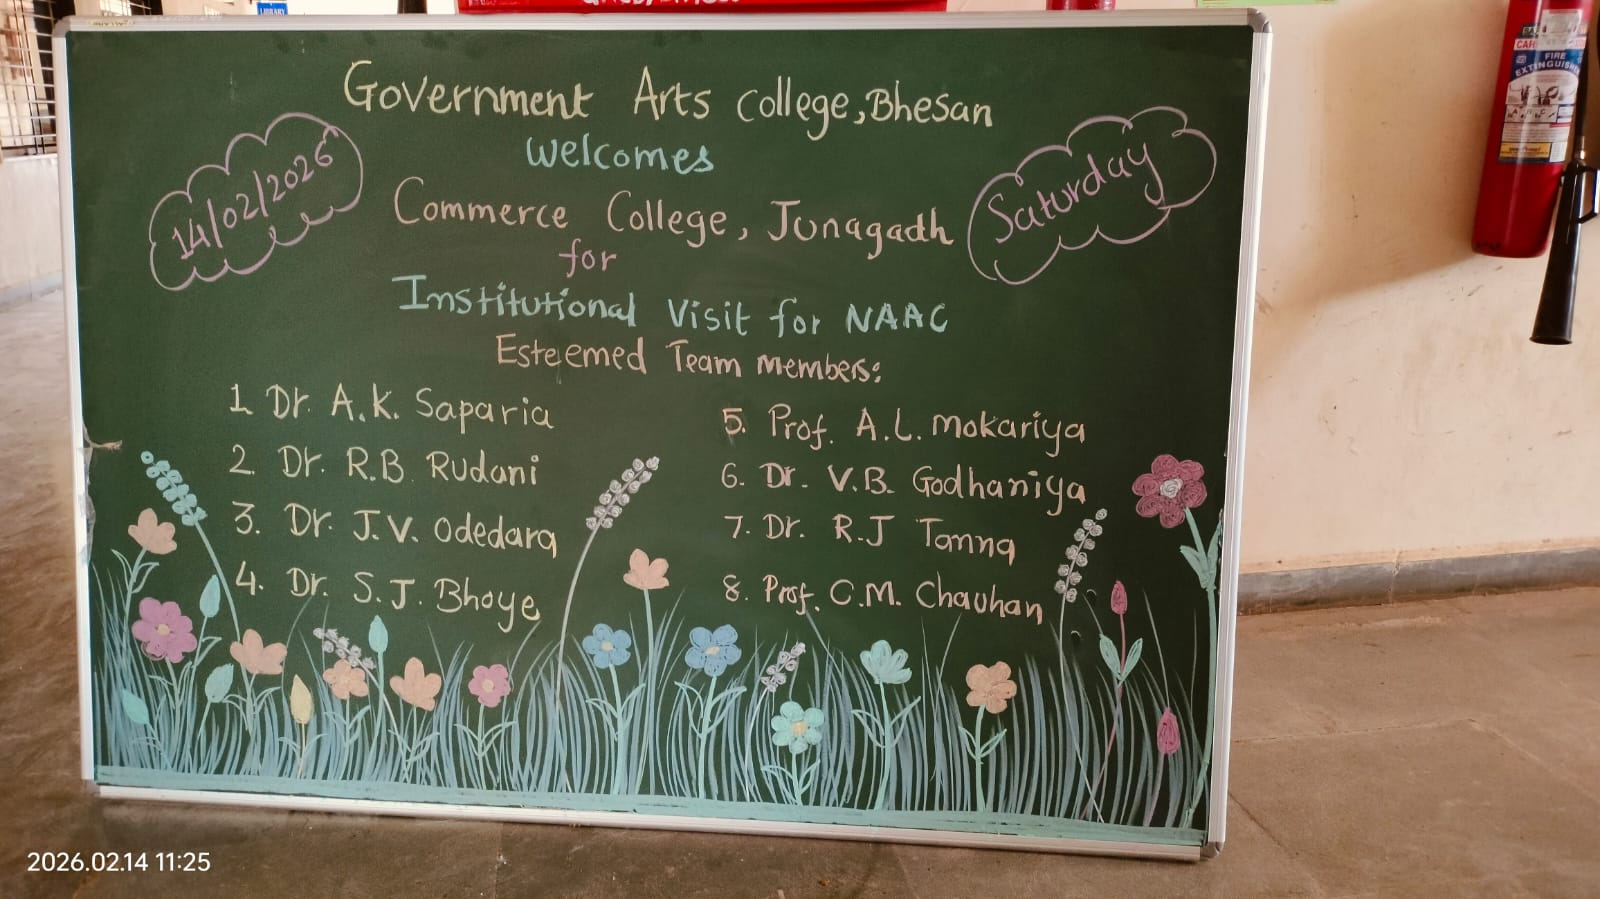 LIBRARY
Government Arts College, Bhesan
Welcomes
14/02/2026
Saturday
Commerce College, Junagadh
for
Institutional Visit for NAAC
Esteemed Team members:
1. Dr. A.K. Saparia
2. Dr. R.B. Rudani
3. Dr. J.V. Odedara
4. Dr. S.J. Bhoye
5. Prof. A.L. Mokariya
6. Dr. V.B. Godhaniya
7. Dr. R.J Tanna
8. Prof. C.M. Chauhan
FIRE
EXTINGUISHER
2026.02.14 11:25